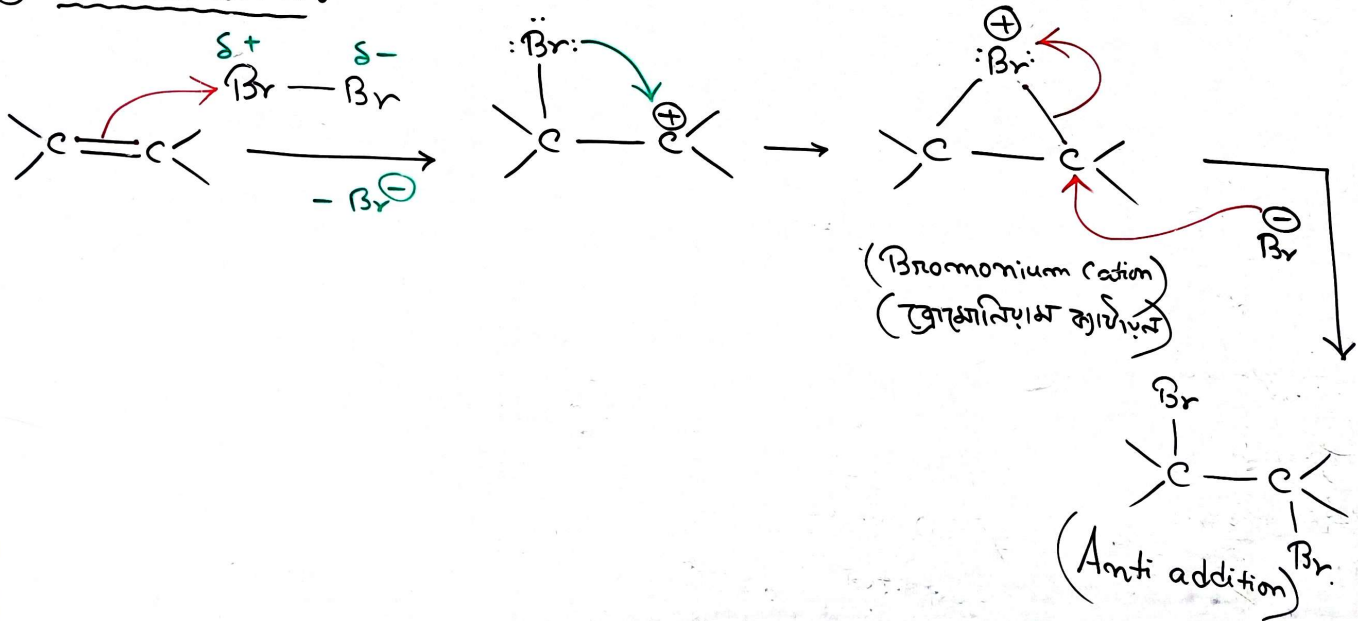 δ+ δ−
Br — Br
C = C
− Br⊖
:B̈r:
C — C⊕
⊕
:Br:
C — C
⊖
Br
(Bromonium Cation)
(ব্রোমোনিয়াম ক্যাটায়ন)
Br
C — C
Br.
(Anti addition)